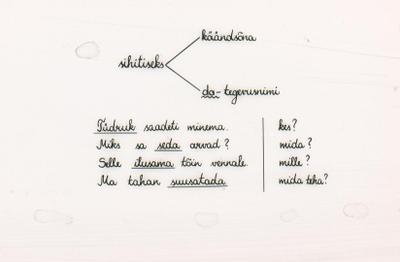 käändsõna
sihitiseks
da-tegevusnimi
Tüdruk saadeti minema. kes?
Miks sa seda arvad? mida?
Selle ilusama tõin vennale. mille?
Ma tahan suusatada mida teha?